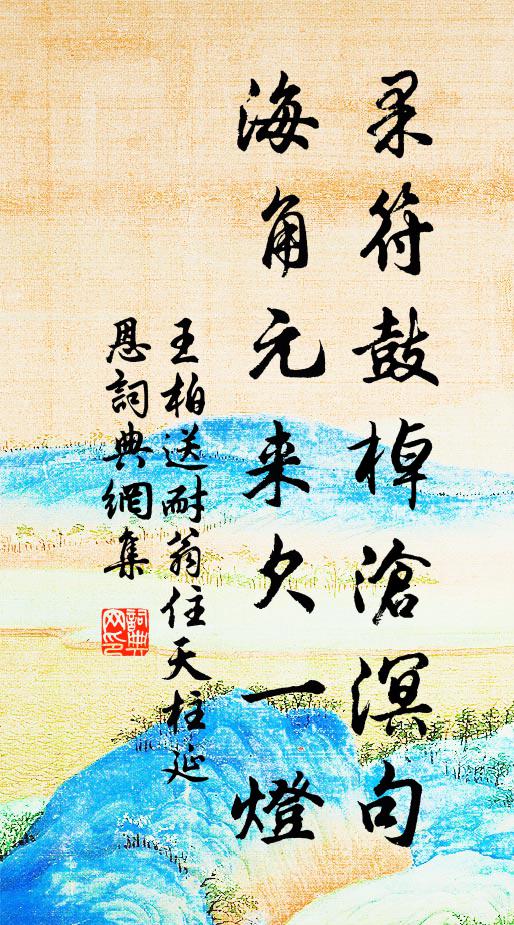 果符鼓棹滄溟句
海角元来欠一燈
王柏送耐翁住天柱延
恩詞典網集
詞典
网印